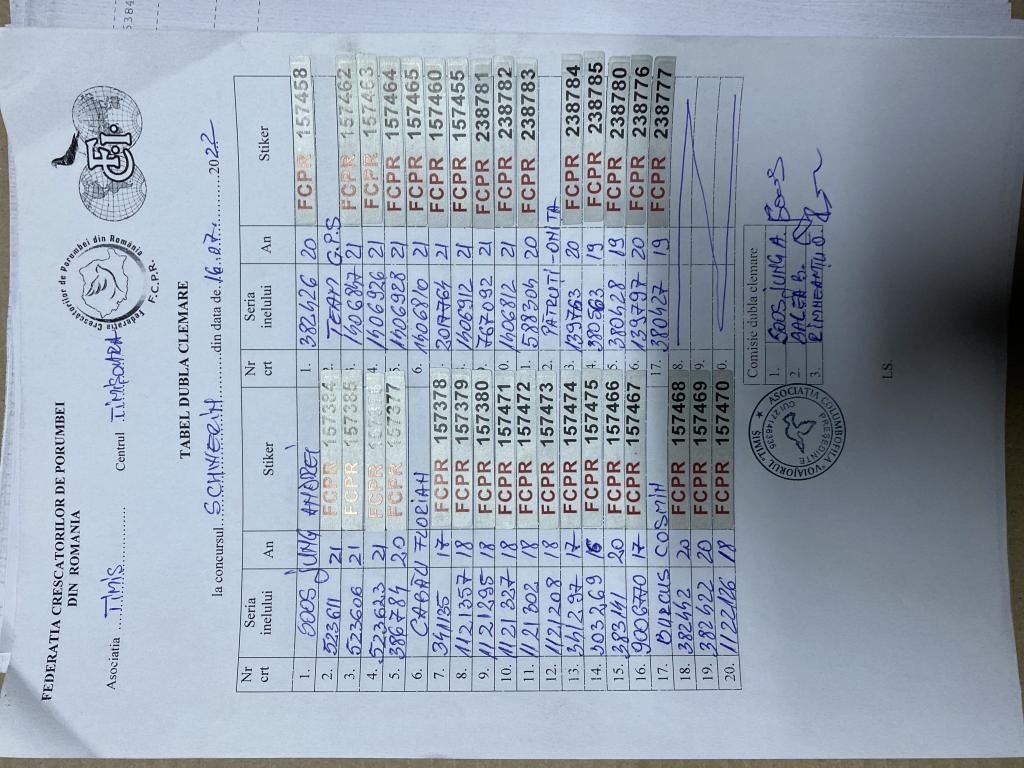 FEDERATIA CRESCATORILOR DE PORUMBEI
DIN ROMANIA
Asociatia TIMIS Centrul TIMISOARA
Federatia Crescătorilor de Porumbei din România
F.C.P.R.
FCI
TABEL DUBLA CLEMARE
la concursul SCHWERIN din data de 16.07. 2022
Nr crt Seria inelului An Stiker
1. SOOS JUNG ANDREI
2. 523611 21 FCPR 157384
3. 523606 21 FCPR 157385
4. 523623 21 FCPR
5. 386784 20 FCPR 157377
6. CABĂU FLORIAN
7. 341135 17 FCPR 157378
8. 1121357 18 FCPR 157379
9. 1121295 18 FCPR 157380
10. 1121327 18 FCPR 157471
11. 1121302 18 FCPR 157472
12. 1121208 18 FCPR 157473
13. 341297 17 FCPR 157474
14. 303269 FCPR 157475
15. 383141 20 FCPR 157466
16. 900670 17 FCPR 157467
17. BURCIS COSMIN
18. 382442 20 FCPR 157468
19. 382422 20 FCPR 157469
20. 1122186 18 FCPR 157470
Nr crt Seria inelului An Stiker
1. 382426 20 FCPR 157458
2. TEAM G.P.S
1406847 21 FCPR 157462
4. 1406926 21 FCPR 157463
5. 1406928 21 FCPR 157464
6. 1406810 21 FCPR 157465
2017764 21 FCPR 157460
1406912 21 FCPR 157455
767092 21 FCPR 238781
0. 1406812 21 FCPR 238782
1. 588304 20 FCPR 238783
2. PĂTROȚI - ONIȚA
3. 139763 20 FCPR 238784
4. 380563 19 FCPR 238785
5. 380428 19 FCPR 238780
6. 139797 20 FCPR 238776
17. 380427 19 FCPR 238777
8.
9.
0.
Comisie dubla clemare
1. SOOS JUNG A.
2. BALEA B.
3. RÎMNEANȚU O.
ASOCIATIA COLUMBOFILA "VOIAJORUL" TIMIȘ
PRESEDINTE
L.S.